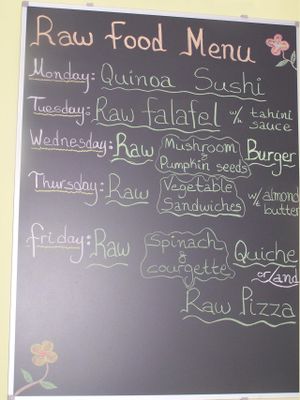 Raw Food Menu
Monday: Quinoa Sushi
Tuesday: Raw falafel w/ tahini sauce
Wednesday: Raw Mushroom & Pumpkin seeds Burger
Thursday: Raw Vegetable Sandwiches w/ almond butter
friday: Raw Spinach & courgette Quiche
or/and
Raw Pizza